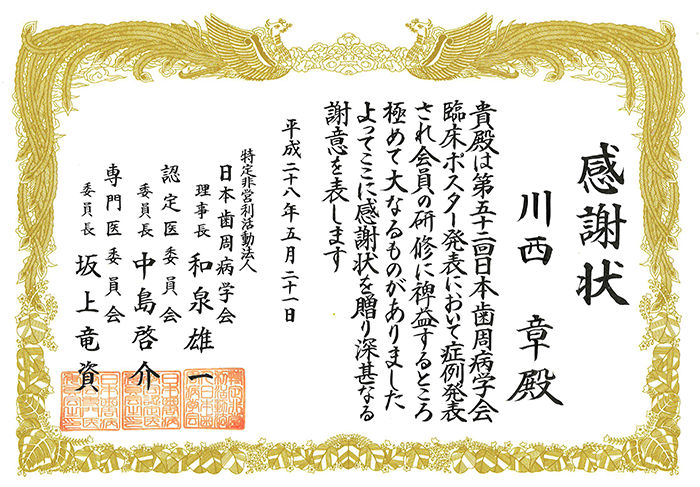 感謝状
川西 章殿
貴殿は第五十二回日本歯周病学会
臨床ポスター発表において症例発表
され会員の研修に裨益するところ
極めて大なるものがありました
よってここに感謝状を贈り深甚なる
謝意を表します
平成二十八年五月二十一日
特定非営利活動法人
日本歯周病学会
理事長 和泉雄一
認定医委員会
委員長 中島啓介
専門医委員会
委員長 坂上竜資